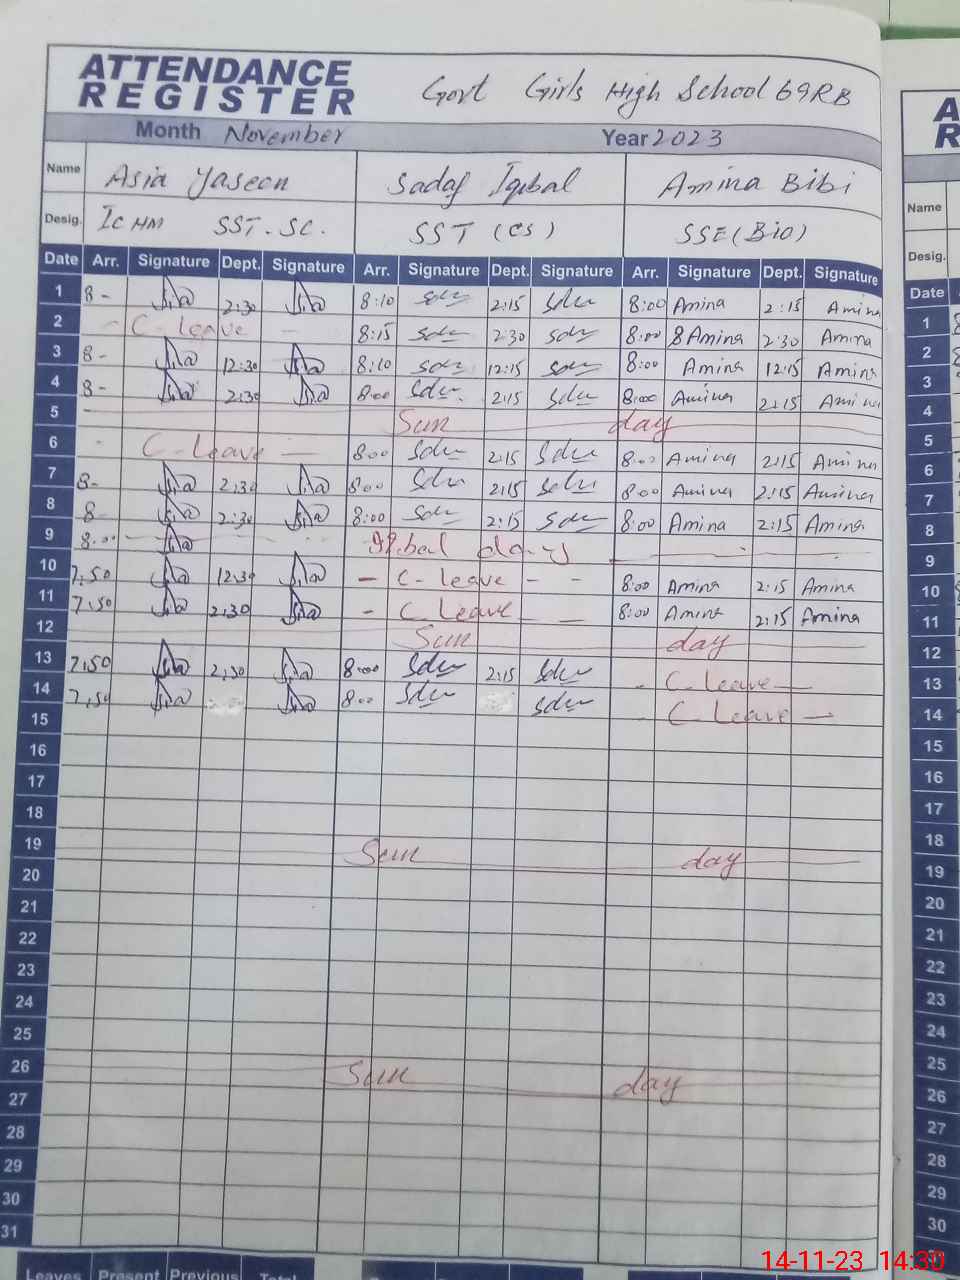 ATTENDANCE
REGISTER
Govt Girls High School 69RB
Month November Year 2023
Name Asia Yaseen Sadaf Iqbal Amina Bibi
Desig. Ic HM SST. SC. SST (CS) SSE (Bio)
Date Arr. Signature Dept. Signature Arr. Signature Dept. Signature Arr. Signature Dept. Signature
1 8- 2:30 8:10 2:15 8:00 Amina 2:15 Amina
2 - C-leave - 8:15 2:30 8:00 8 Amina 2:30 Amina
3 8- 12:30 8:10 12:15 8:00 Amina 12:15 Amina
4 8- 2:30 8:00 2:15 8:00 Amina 2:15 Amina
5 Sun day
6 - C-leave - 8:00 2:15 8:00 Amina 2:15 Amina
7 8- 2:30 8:00 2:15 8:00 Amina 2:15 Amina
8 8- 2:30 8:00 2:15 8:00 Amina 2:15 Amina
9 8:00 Iqbal day
10 7:50 12:30 - C-leave - - 8:00 Amina 2:15 Amina
11 7:50 2:30 - C-leave - - 8:00 Amina 2:15 Amina
12 Sun day
13 7:50 2:30 8:00 2:15 - C-leave -
14 7:50 8:00 - C-leave -
15
16
17
18
19 Sun day
20
21
22
23
24
25
26 Sun day
27
28
29
30
31
Leaves Present Previous Total
A
R
Name
Desig.
Date
1
2
3
4
5
6
7
8
9
10
11
12
13
14
15
16
17
18
19
20
21
22
23
24
25
26
27
28
29
30
14-11-23 14:30